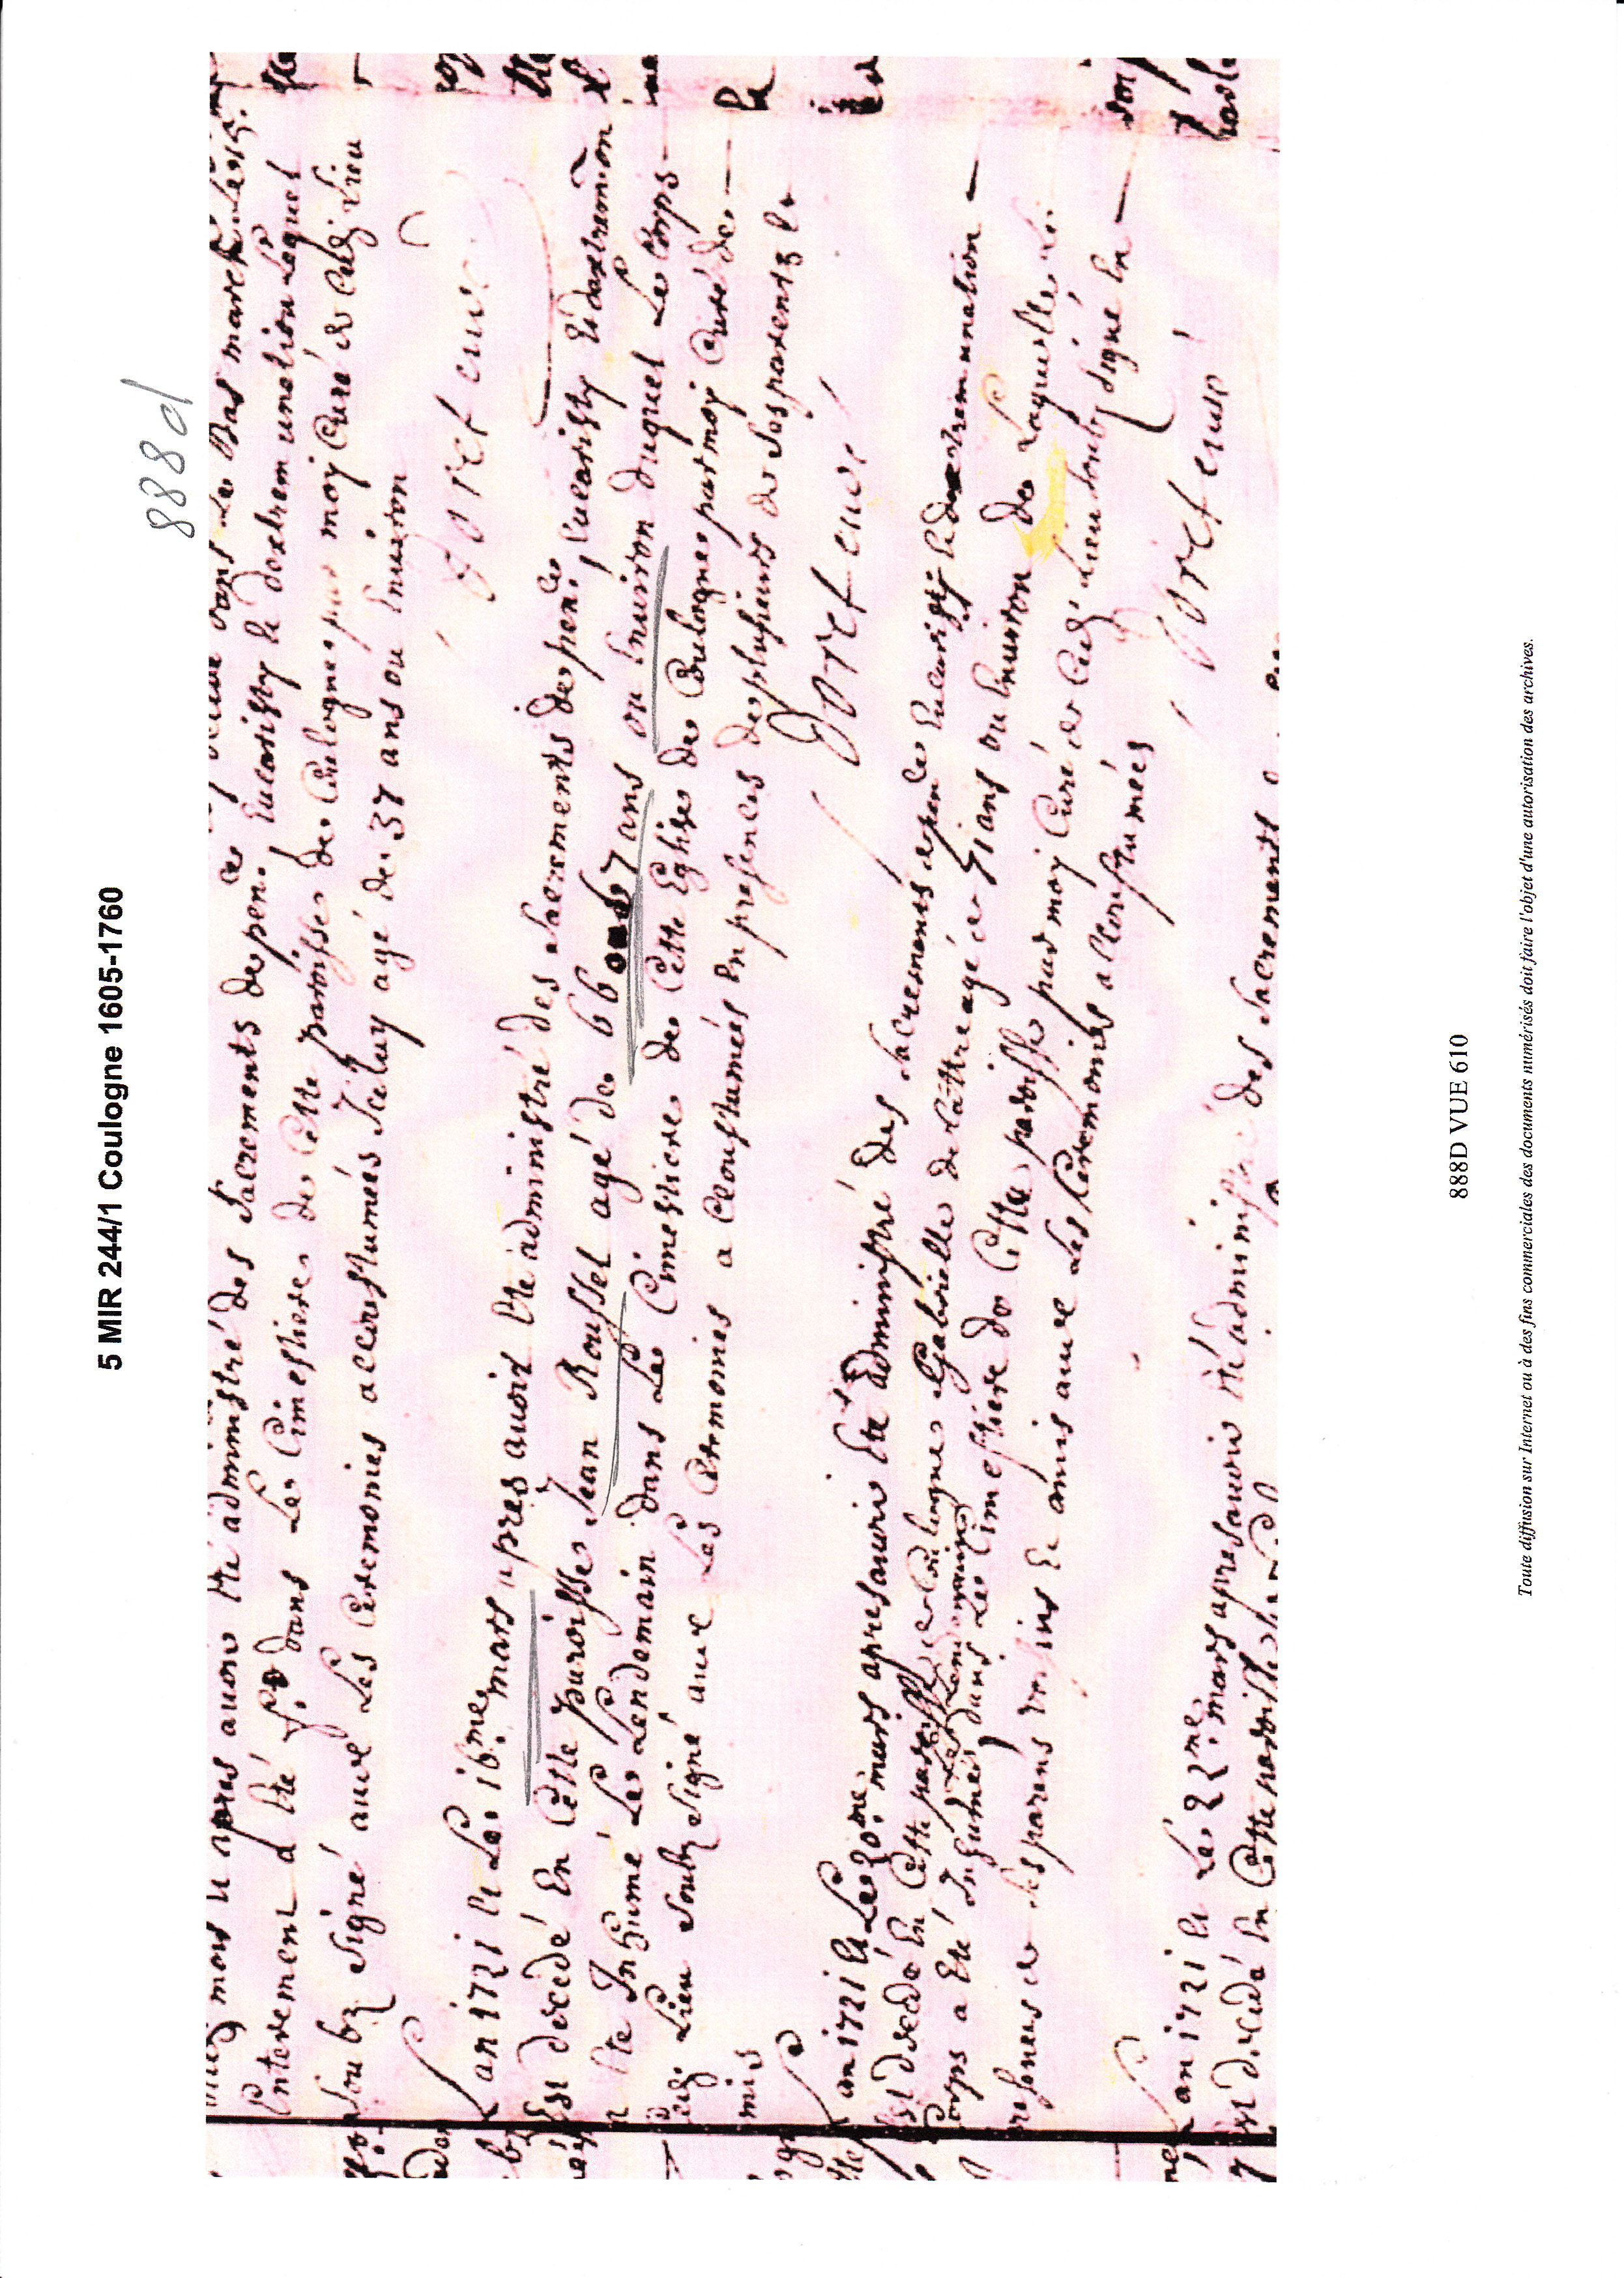 5 MIR 244/1 Coulogne 1605-1760
888d
dans Le Bas marck Le 15.
mars et apres auoir Eté administré des Sacrements de pen.ce Eucaristy Et dextremunction Lequel
Enterement a Eté f. dans Le Cimestiere de Cette paroisse de Coulogne par moy Curé de Ced. Lieu
soubz Signé auec Les Ceremonies accoustumées Iceluy agé de 37 ans ou Enuiron
Goret curé
Lan 1721 Et Le 16.me mars apres auoir Eté administré des Sacrements de pen.ce Eucaristy Et dextremon
Est décédé En Cette paroisse Jean Roussel agé de 66 ou 67 ans ou Enuiron duquel Le Corps
a Ete Inhumé Le Lendemain dans Le Cimestiere de Cette Eglise de Coulogne par moy Curé de
Ced. Lieu soubz Signé auec Les Ceremonies a Coustumées En presences de plusieurs de Ses parents Et
amis
Goret curé
Lan 1721 Et Le 20.me mars apres auoir Eté administré des Sacrements de pen.ce Eucaristy Et dextremunction
Est decedé En Cette paroisse de Coulogne Gabrielle delattre agé de 51 ans ou Enuiron de Laquelle Le
Corps a Eté Inhumé Le Lendemain dans Le Cimestiere de Cette paroisse par moy Curé de Ced. Lieu soubz signé En
presences de Ses parens voisins Et amis auec Les Ceremonies accoustumées
Goret curé
Lan 1721 Et Le 22.me mars apres auoir Eté administré des Sacrements
Est decedé En Cette paroisse
888D VUE 610
Toute diffusion sur Internet ou à des fins commerciales des documents numérisés doit faire l'objet d'une autorisation des archives.